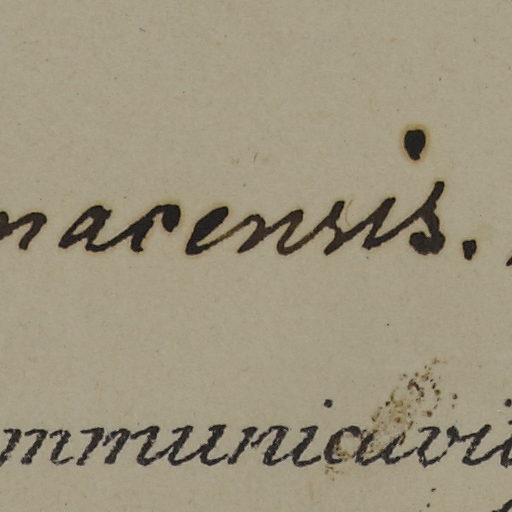 macensis.
ommunicavit